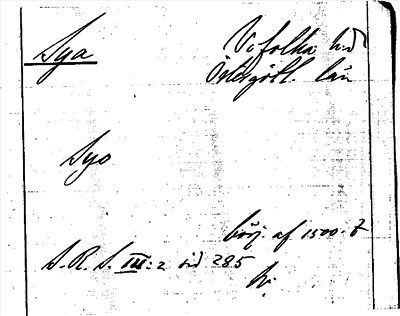 Sya
Vifolka hd
Östergötl. län
Syo
börj. af 1500-t
S.R.S. III:2 sid 285